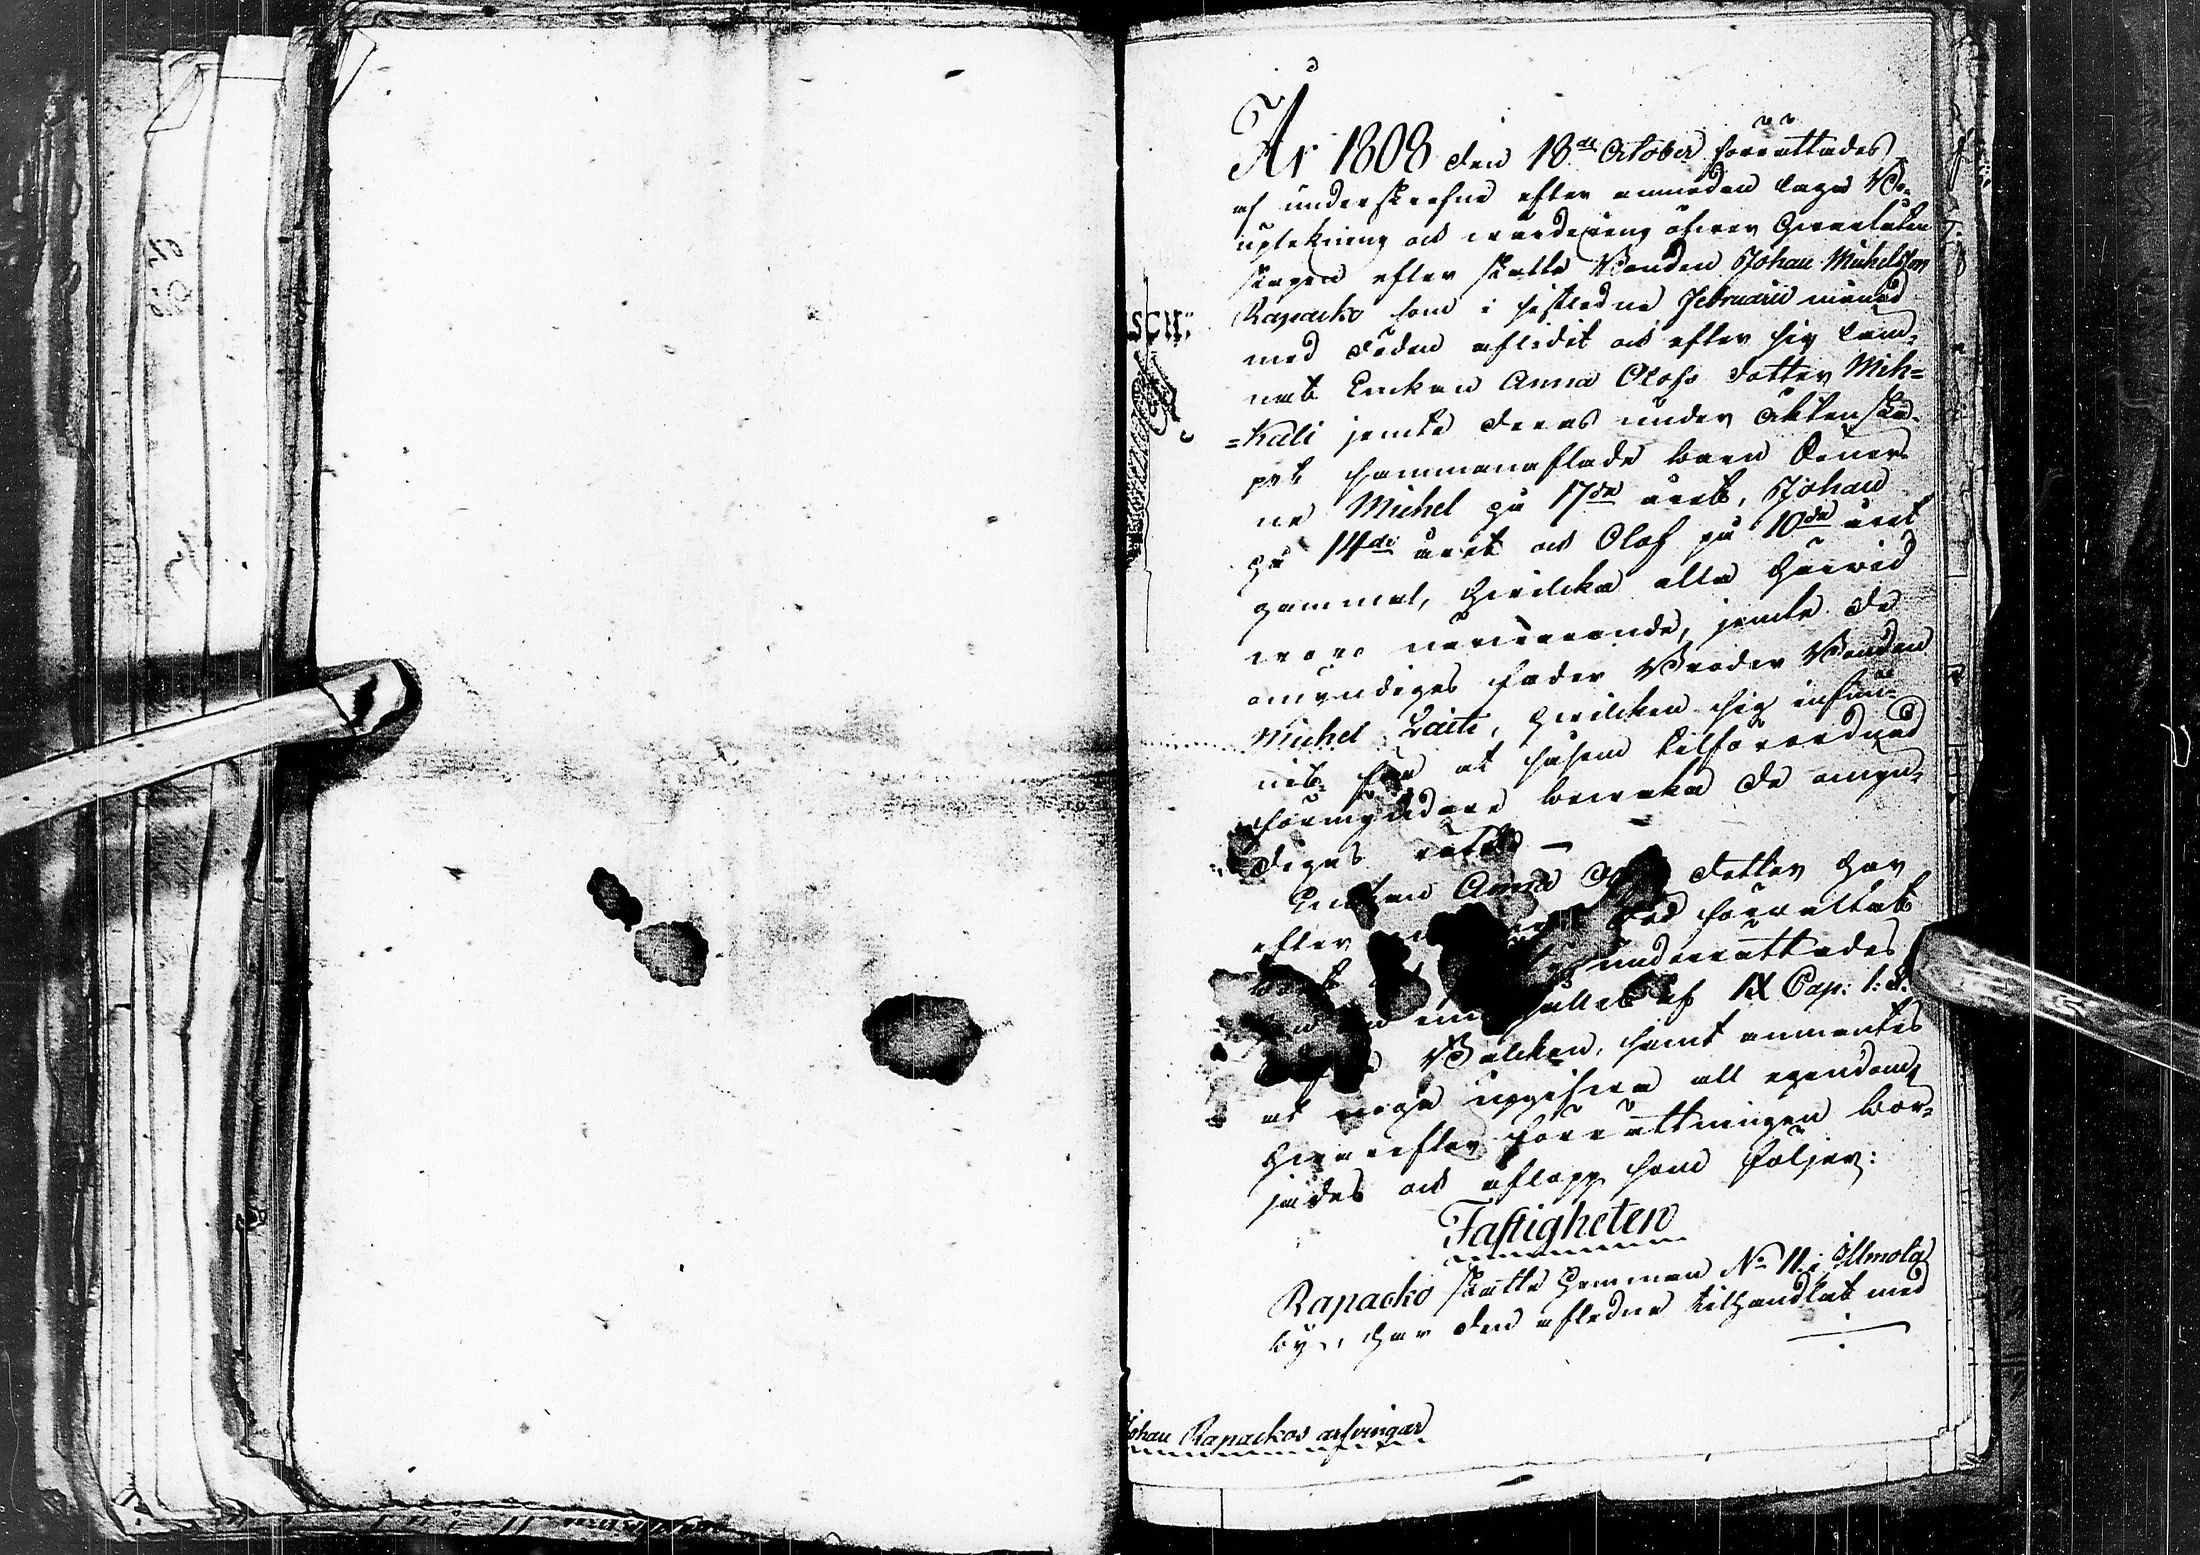 År 1808 den 18de October förrättades
af underskrefne efter anmodan laga Bo-
uptekning och värdering öfver Qvarlåten
skapen efter skatte Bonden Johan Michelsson
Rapacko som i sistledne Februarii månad
med döden aflidit och efter sig läm-
nat Enkan Anna Olofs dotter Mich-
=kali jemte deras under äktenska-
pet sammanaflade barn Söner-
ne Michel på 17de året, Johan
på 14de året och Olof på 10de året
gammal, hvilcka alla härvid
voro närvarande, jemte de
omyndiges fader Broder Bonden
Michel Laiti, hvilcken sig infun-
nit för at såsom tilförordnad
förmyndare bevaka de omyn-
diges rätt —
Enkan Anna dotter har
efter Ed förrättat
underrättades
innehållet af IX Cap: 1: §.
Balcken, samt anmantes
at noga uppgifva all egendom,
hvarefter förrättningen bör-
jades och aflopp som följer:
Fastigheten
Rapacko skatte Hemman No 11 i Ilmola
by, har den aflidne tilhandlat med
Johan Rapackos arfvingar